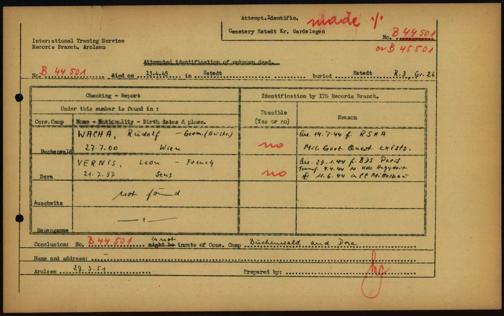 Attempt.Identific. made ./.
Cemetery Estedt Kr. Gardelegen
International Tracing Service
Records Branch, Arolsen
No. B 44501
or B 45501
Attempted identification of unknown dead.
No. B 44 501 died on 13.4.45 in Estedt buried Estedt R.3, Gr.26
Checking - Report
Identification by ITS Records Branch.
Under this number is found in:
Feasible (Yes or no)
Reason
Conc.Camp Name - Nationality - Birth dates & place.
WACHA, Rudolf - Germ.(Austr.)
Buchenwald 27.7.00 Wien
no
arr. 14.7.44 f. RSHA
Mil. Govt. Quest. exists.
VERNIS, Leon - French
Dora 21.7.97 Sens
no
arr. 29.1.44 f. BDS Paris
11.6.44 a CC Mittelbau
Auschwitz not found
Neuengamme - " -
Conclusion: No. B 44 501 inmate of Conc. Camp Buchenwald and Dora
Name and address: -
Arolsen 29.3.51 Prepared by: